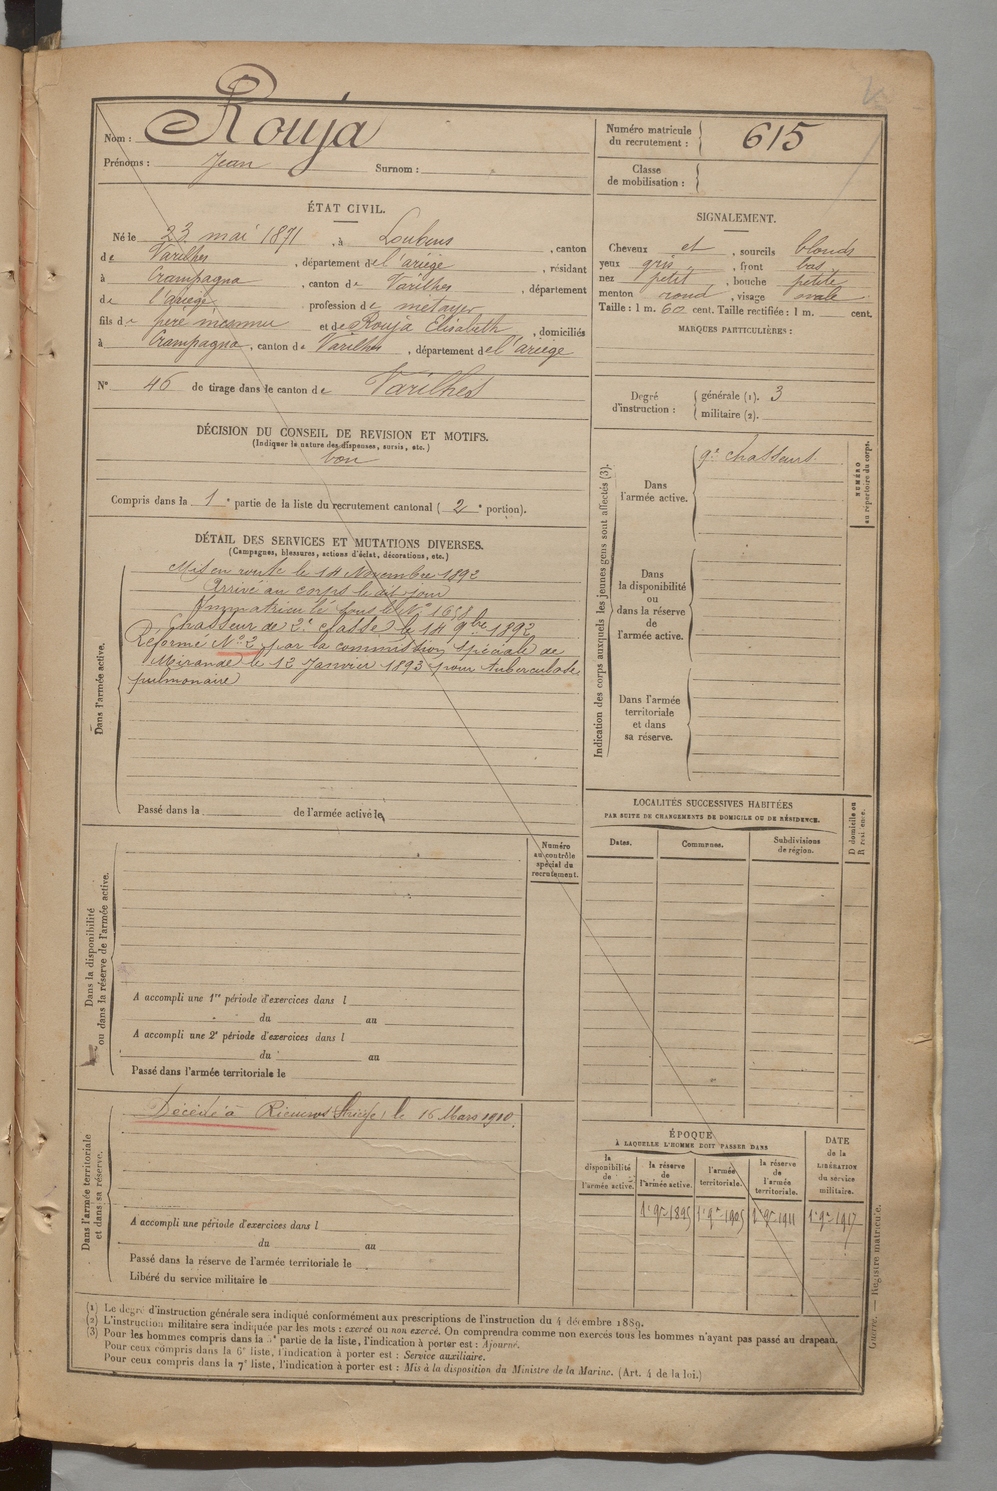 Nom : Rouja
Prénoms : Jean Surnom :
Numéro matricule du recrutement : 615
Classe de mobilisation :
ÉTAT CIVIL.
Né le 23 mai 1871, à Loubens, canton
de Varilhes, département de l'ariège, résidant
à Crampagna, canton de Varilhes, département
de l'ariège profession de métayer
fils de père inconnu et de Rouja Elisabeth, domiciliés
à Crampagna, canton de Varilhes, département de l'ariège
N° 46 de tirage dans le canton de Varilhes
DÉCISION DU CONSEIL DE REVISION ET MOTIFS.
(Indiquer la nature des dispenses, sursis, etc.)
bon
Compris dans la 1e partie de la liste du recrutement cantonal (2e portion).
SIGNALEMENT.
Cheveux et, sourcils blonds
yeux gris, front bas
nez petit, bouche petite
menton rond, visage ovale
Taille : 1 m. 60 cent. Taille rectifiée : 1 m. cent.
MARQUES PARTICULIÈRES :
Degré d'instruction : générale (1). 3
militaire (2).
DÉTAIL DES SERVICES ET MUTATIONS DIVERSES.
(Campagnes, blessures, actions d'éclat, décorations, etc.)
Dans l'armée active.
Mis en route le 14 Novembre 1892
Arrivé au corps le dit jour
Immatriculé sous le N° 1658
Chasseur de 2e classe le 14 9bre 1892
Réformé N° 2 par la commission spéciale de
Mirande le 12 Janvier 1893 pour tuberculose
pulmonaire
Passé dans la de l'armée active le
Indication des corps auxquels les jeunes gens sont affectés (3).
NUMÉRO au répertoire du corps.
Dans l'armée active.
9e chasseurs.
Dans la disponibilité ou dans la réserve de l'armée active.
Dans l'armée territoriale et dans sa réserve.
LOCALITÉS SUCCESSIVES HABITÉES
PAR SUITE DE CHANGEMENTS DE DOMICILE OU DE RÉSIDENCE.
Dates. Communes. Subdivisions de région. D domicile ou R résidence.
Numéro au contrôle spécial du recrutement.
Dans la disponibilité ou dans la réserve de l'armée active.
A accompli une 1re période d'exercices dans l
du au
A accompli une 2e période d'exercices dans l
du au
Passé dans l'armée territoriale le
Dans l'armée territoriale et dans sa réserve.
Décédé à le 16 Mars 1910.
A accompli une période d'exercices dans l
du au
Passé dans la réserve de l'armée territoriale le
Libéré du service militaire le
ÉPOQUE
À LAQUELLE L'HOMME DOIT PASSER DANS
la disponibilité de l'armée active.
la réserve de l'armée active.
l'armée territoriale.
la réserve de l'armée territoriale.
DATE de la LIBÉRATION du service militaire.
1er 9bre 1895 1er 9bre 1905 1er 9bre 1911 1er 9bre 1917
(1) Le degré d'instruction générale sera indiqué conformément aux prescriptions de l'instruction du 4 décembre 1889.
(2) L'instruction militaire sera indiquée par les mots : exercé ou non exercé. On comprendra comme non exercés tous les hommes n'ayant pas passé au drapeau.
(3) Pour les hommes compris dans la 5e partie de la liste, l'indication à porter est : Ajourné.
Pour ceux compris dans la 6e liste, l'indication à porter est : Service auxiliaire.
Pour ceux compris dans la 7e liste, l'indication à porter est : Mis à la disposition du Ministre de la Marine. (Art. 4 de la loi.)
Guerre. — Registre matricule.